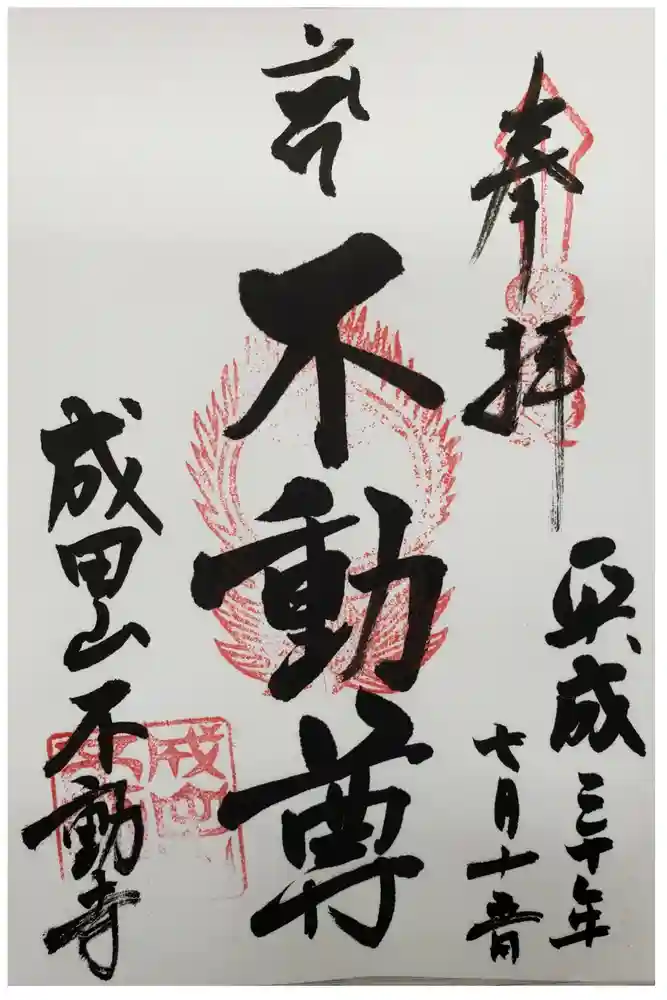 奉拝
平成三十年
七月十五日
不動尊
成田山不動寺